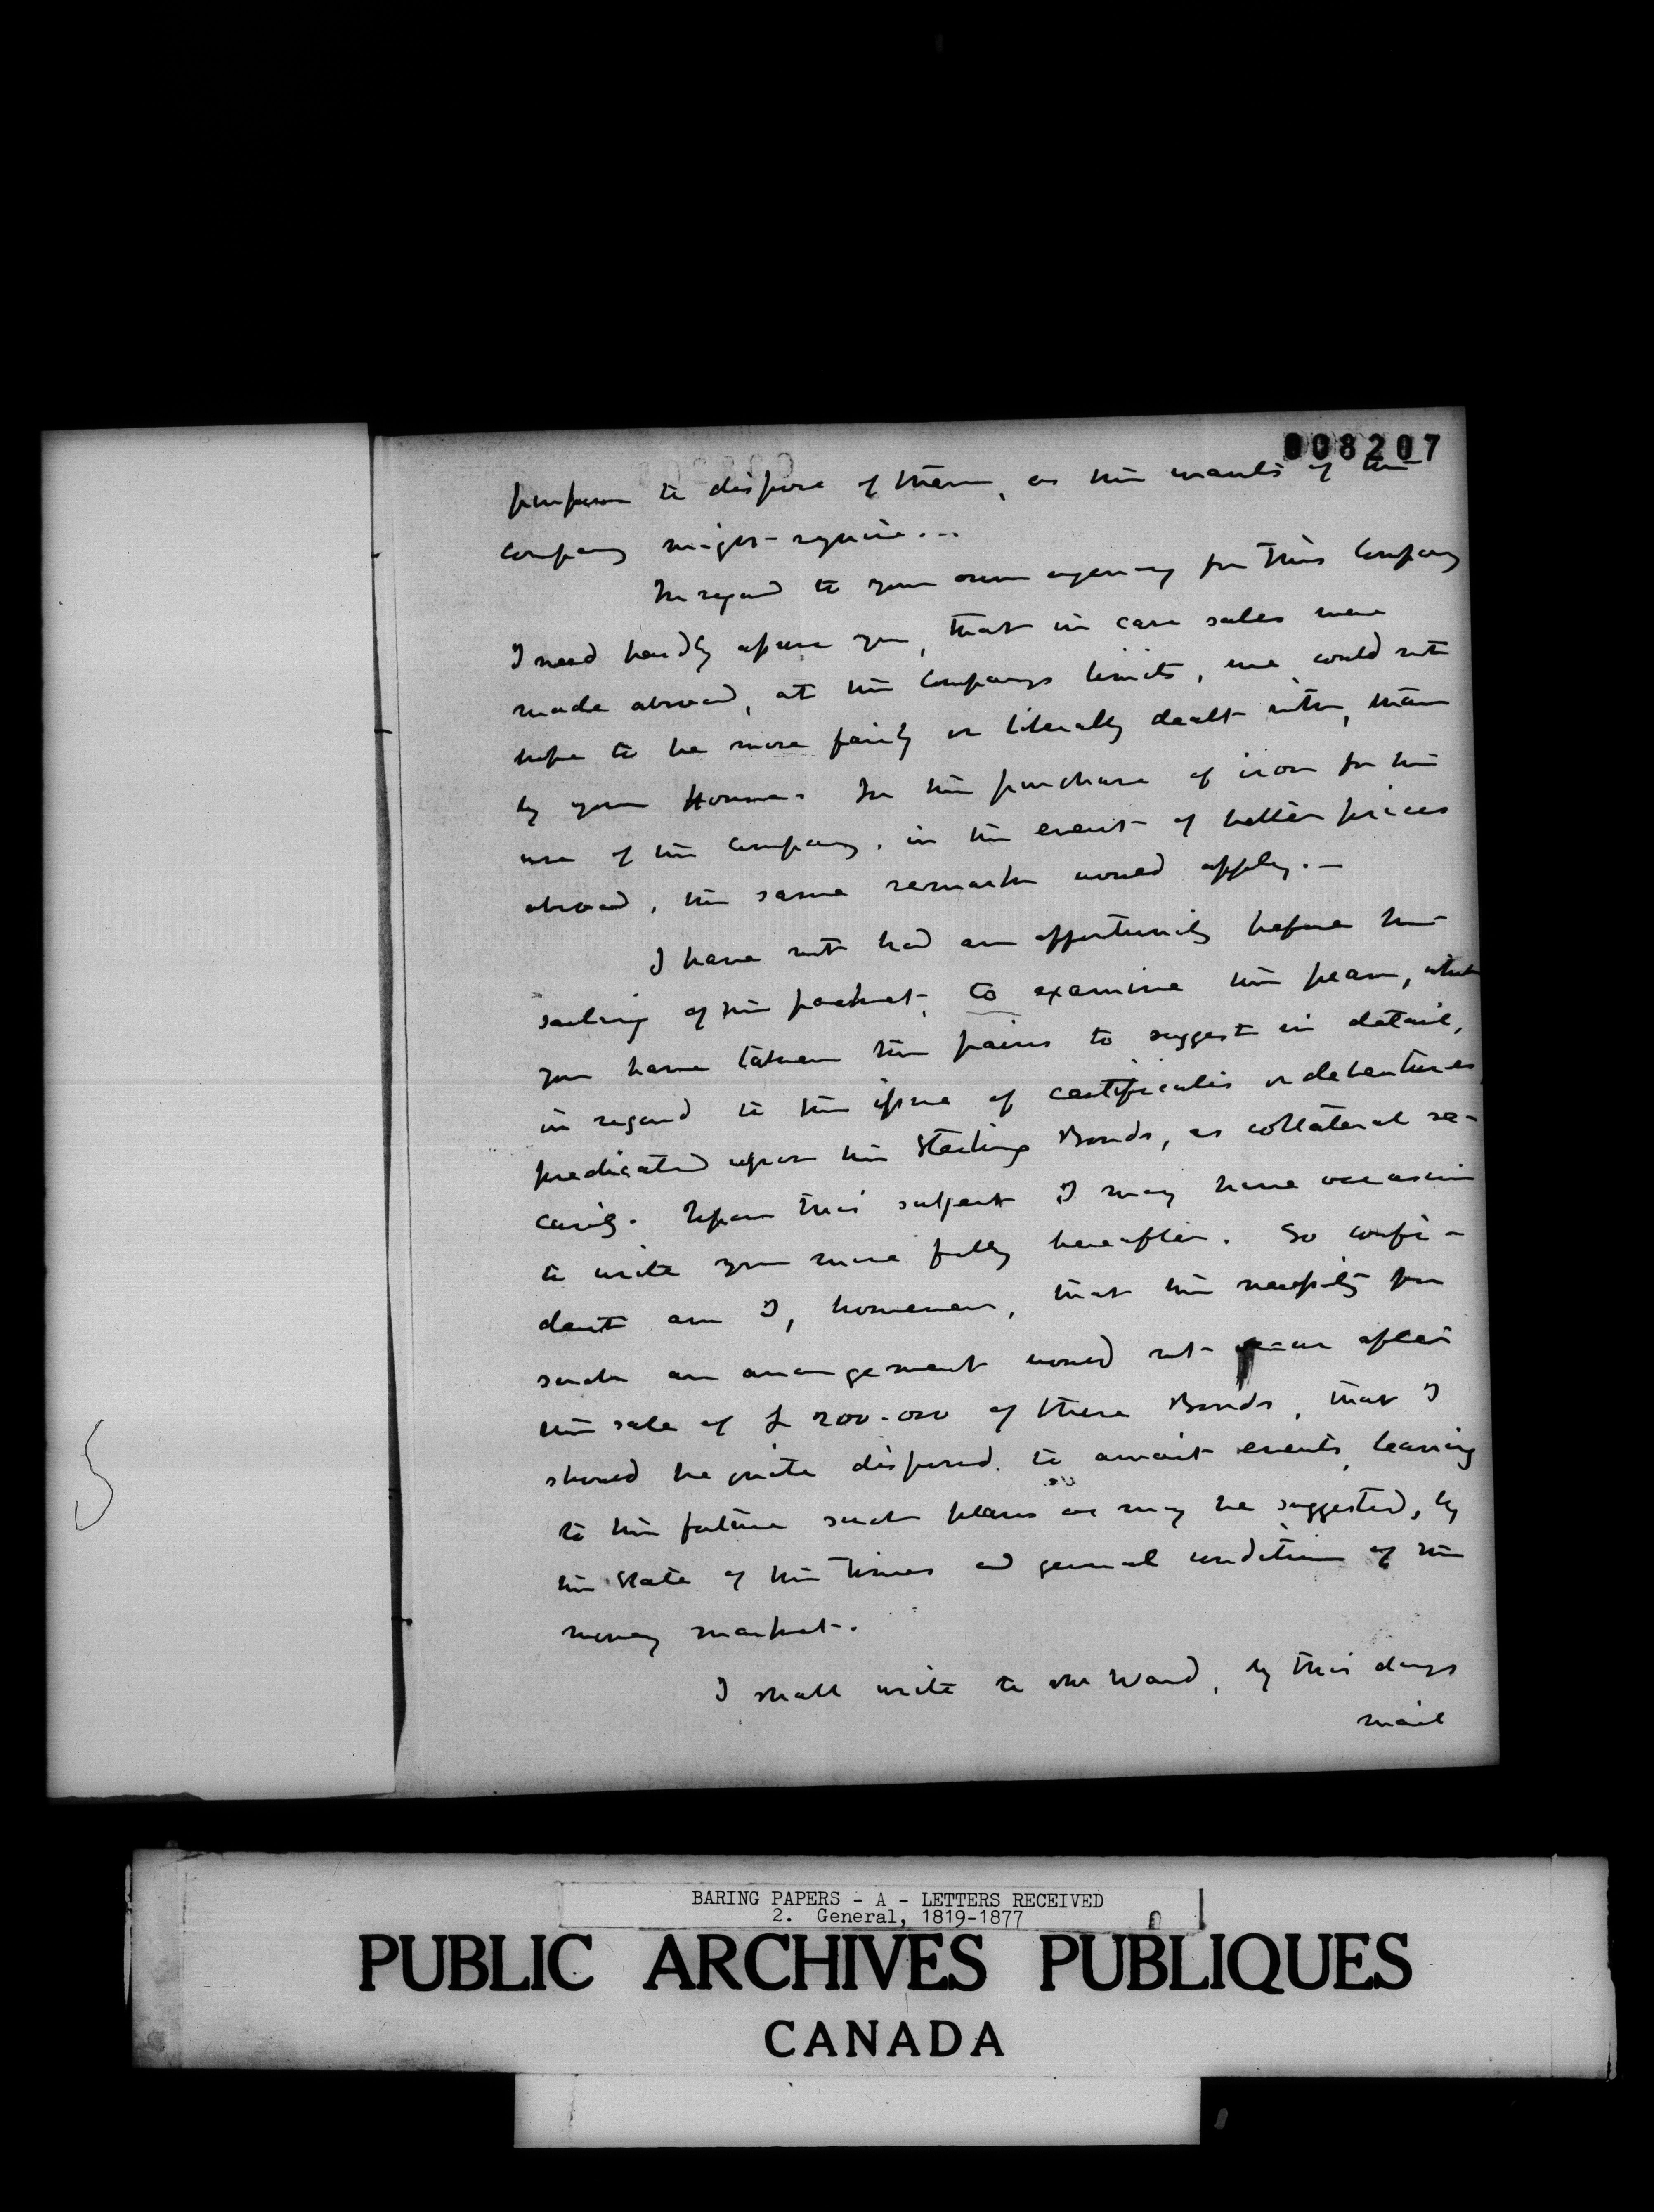 008207
purpose to dispose of them, as the wants of the
Company might require. . .
In regard to your own agency for this Company
I need hardly assure you, that in case sales were
made abroad, at the Companys limits, we could not
hope to be more fairly or liberally dealt with, than
by your House. In the purchase of iron for the
use of the Company, in the event of better prices
abroad, the same remark would apply. —
I have not had an opportunity before the
sailing of the packet, to examine the plan, which
you have taken the pains to suggest in detail,
in regard to the issue of certificates or debentures,
predicated upon the Sterling Bonds, as collateral se-
curity. Upon this subject I may have occasion
to write you more fully hereafter. So confi-
dent am I, however, that the necessity for
such an arrangement would not occur after
the sale of £ 200.000 of these Bonds, that I
should be quite disposed to await events, leaving
to the future such plans as may be suggested, by
the State of the times and general condition of the
money market.
I shall write to Mr Ward, by this days
mail
5
BARING PAPERS - A - LETTERS RECEIVED
2. General, 1819-1877
PUBLIC ARCHIVES PUBLIQUES
CANADA